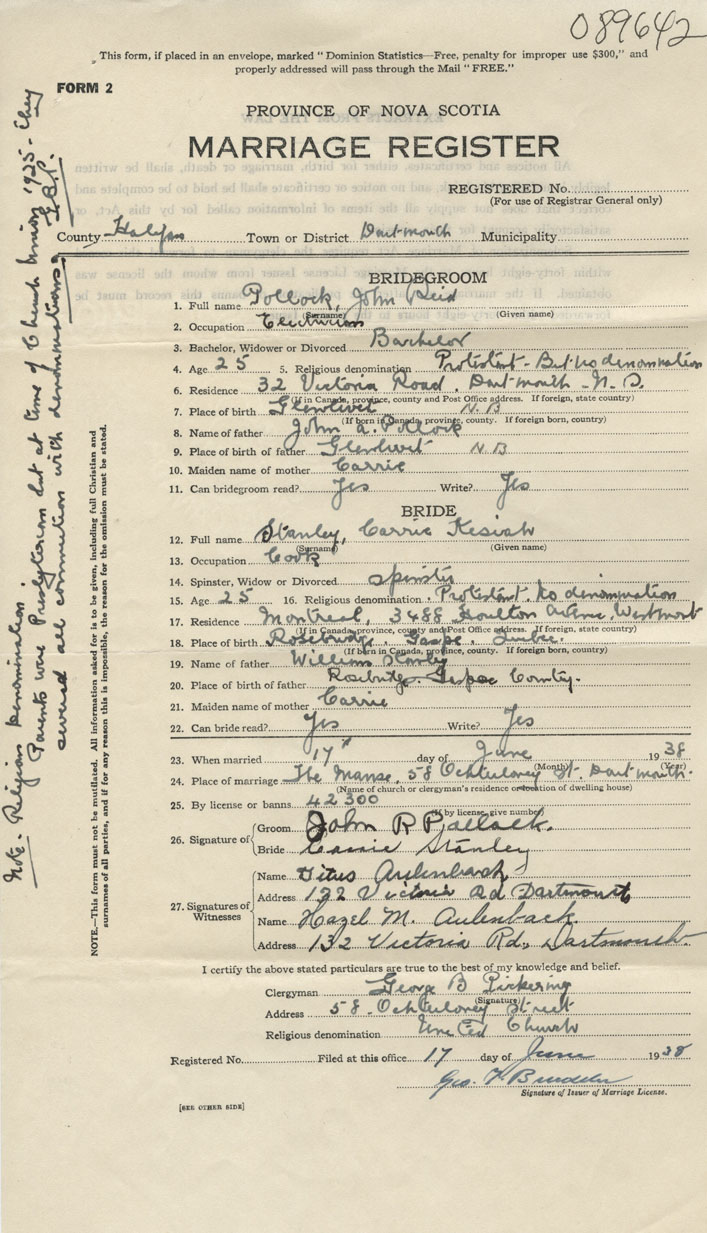 089642
This form, if placed in an envelope, marked "Dominion Statistics—Free, penalty for improper use $300," and
properly addressed will pass through the Mail "FREE."
FORM 2
PROVINCE OF NOVA SCOTIA
MARRIAGE REGISTER
REGISTERED No.
(For use of Registrar General only)
County Halifax Town or District Dartmouth Municipality
BRIDEGROOM
1. Full name Pollock, John Reid
(Surname) (Given name)
2. Occupation Electrician
3. Bachelor, Widower or Divorced Bachelor
4. Age 25 5. Religious denomination Protestant - But no denomination
6. Residence 32 Victoria Road. Dartmouth - N. S.
(If in Canada, province, county and Post Office address. If foreign, state country)
7. Place of birth Glenlivet N.B
(If born in Canada, province, county. If foreign born, country)
8. Name of father John A. Pollock
9. Place of birth of father Glenlivet N B
10. Maiden name of mother Carrie
11. Can bridegroom read? Yes Write? Yes
BRIDE
12. Full name Stanley, Carrie Kesiah
(Surname) (Given name)
13. Occupation Cook
14. Spinster, Widow or Divorced spinster
15. Age 25 16. Religious denomination Protestant no denomination
17. Residence Montreal, 3488 Avenue, Westmont
(If in Canada, province, county and Post Office address. If foreign, state country)
18. Place of birth Gaspe. Quebec.
(If born in Canada, province, county. If foreign born, country)
19. Name of father William Stanley
20. Place of birth of father Gaspe County.
21. Maiden name of mother Carrie
22. Can bride read? Yes Write? Yes
23. When married 17th day of June 1938
(Month) (Year)
24. Place of marriage The Manse, 58 Ochterloney St. Dartmouth.
(Name of church or clergyman's residence or location of dwelling house)
25. By license or banns 42300
(If by license, give number)
26. Signature of
Groom John R Pollock.
Bride Carrie Stanley
27. Signatures of Witnesses
Name Titus Aulenback
Address 132 Victoria Rd Dartmouth
Name Hazel M. Aulenback.
Address 132 Victoria Rd., Dartmouth.
I certify the above stated particulars are true to the best of my knowledge and belief.
Clergyman George B Pickering
(Signature)
Address 58 - Ochterloney Street
Religious denomination United Church
Registered No. Filed at this office 17 day of June 1938
Geo.
Signature of Issuer of Marriage License.
[SEE OTHER SIDE]
NOTE.—This form must not be mutilated. All information asked for is to be given, including full Christian and
surnames of all parties, and if for any reason this is impossible, the reason for the omission must be stated.
Note. Religious Denomination
Parents were Presbyterian but at time of Church Union 1925 - they
severed all connection with denominations.